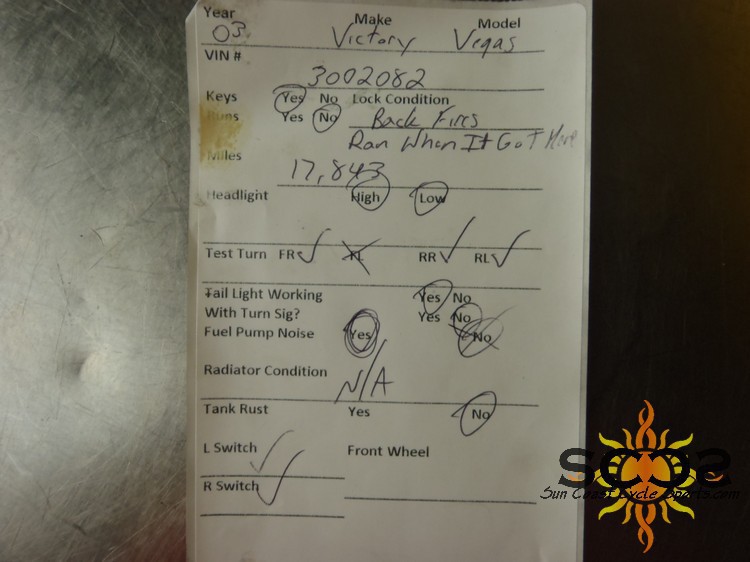 Year Make Model
03 Victory Vegas
VIN #
3002082
Keys Yes No Lock Condition
Runs Yes No Back Fires
Ran When It Got Here
Miles
17,843
Headlight High Low
Test Turn FR FL RR RL
Tail Light Working Yes No
With Turn Sig? Yes No
Fuel Pump Noise Yes No
Radiator Condition
N/A
Tank Rust Yes No
L Switch Front Wheel
R Switch
SCCS
Sun Coast Cycle Sports.com